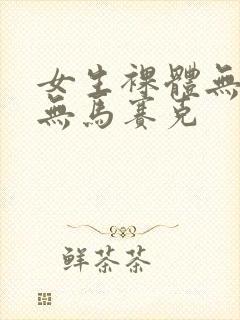 女生裸體無
無馬賽克
鮮茶茶